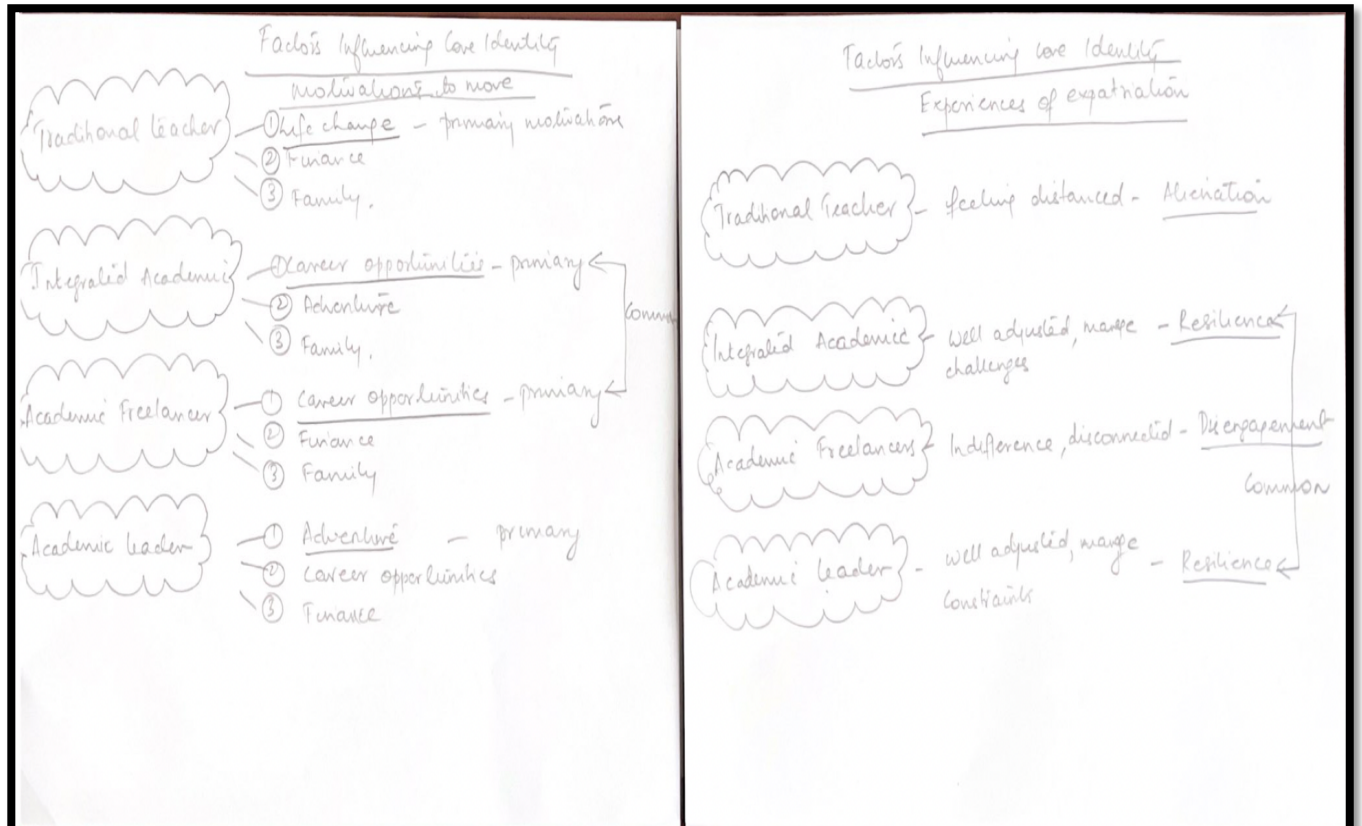 Factors Influencing Core Identity
Motivations to more
Traditional teacher
① Life change - primary motivations
② Finance
③ Family.
Integrated Academic
① Career opportunities - primary
② Adventure
③ Family.
Common
Academic Freelancer
① Career opportunities - primary
② Finance
③ Family
Academic leader
① Adventure - primary
② Career opportunities
③ Finance
Factors Influencing Core Identity
Experiences of expatriation
Traditional Teacher - feeling distanced - Alienation
Integrated Academic - well adjusted, manage - Resilience
challenges
Academic Freelancers - Indifference, disconnected - Disengagement
Common
Academic leader - well adjusted, manage - Resilience
constraints